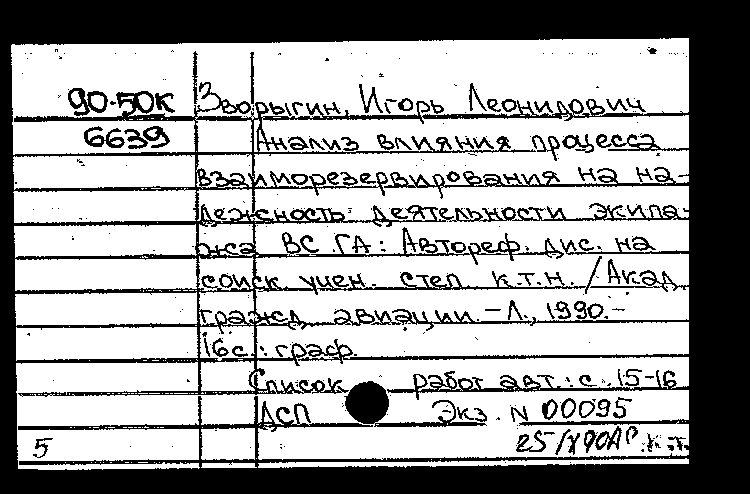 90-50К Зворыгин, Игорь Леонидович
6639 Анализ влияния процесса
взаиморезервирования на на-
дежность деятельности экипа-
жа ВС ГА: Автореф. дис. на
соиск. учен. степ. к.т.н. / Акад.
гражд. авиации. - Л., 1990. -
16 с.: граф.
Список работ авт.: с. 15-16
ДСП Экз. N 00095
5